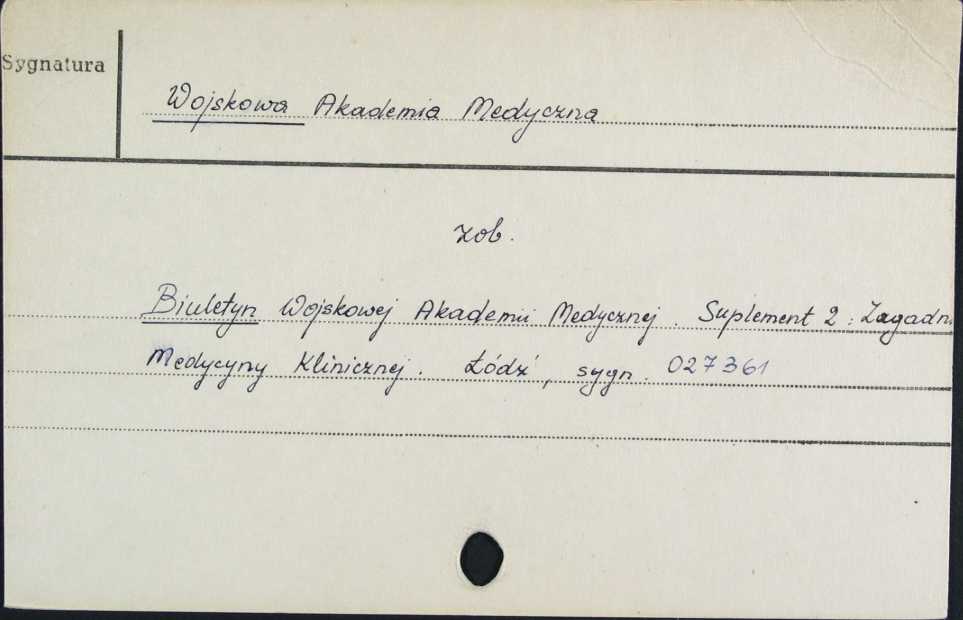 Sygnatura
Wojskowa Akademia Medyczna
zob.
Biuletyn Wojskowej Akademii Medycznej. Suplement 2: Zagadn.
Medycyny Klinicznej. Łódź, sygn. 027361